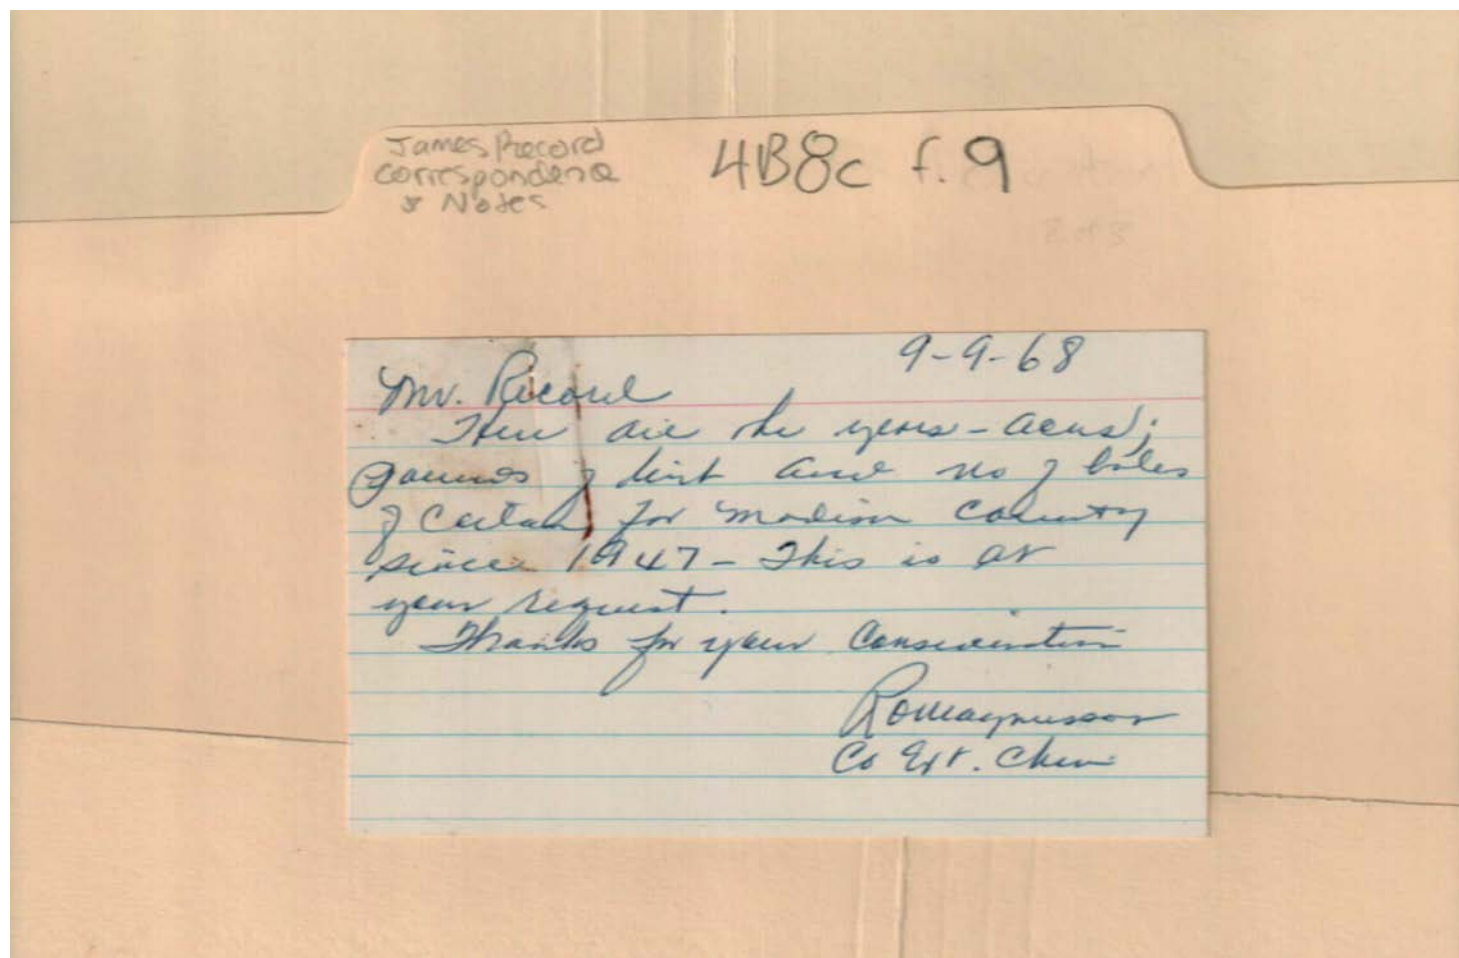 James Record
correspondence
& Notes
4B8c f.9
2 of 3
9-9-68
Mr. Record
Here are the years - acres;
pounds of lint and no of bales
of Cotton for Madison County
since 1947 - This is at
your request.
Thanks for your Consideration
R O Magnusson
Co Ext. Chm